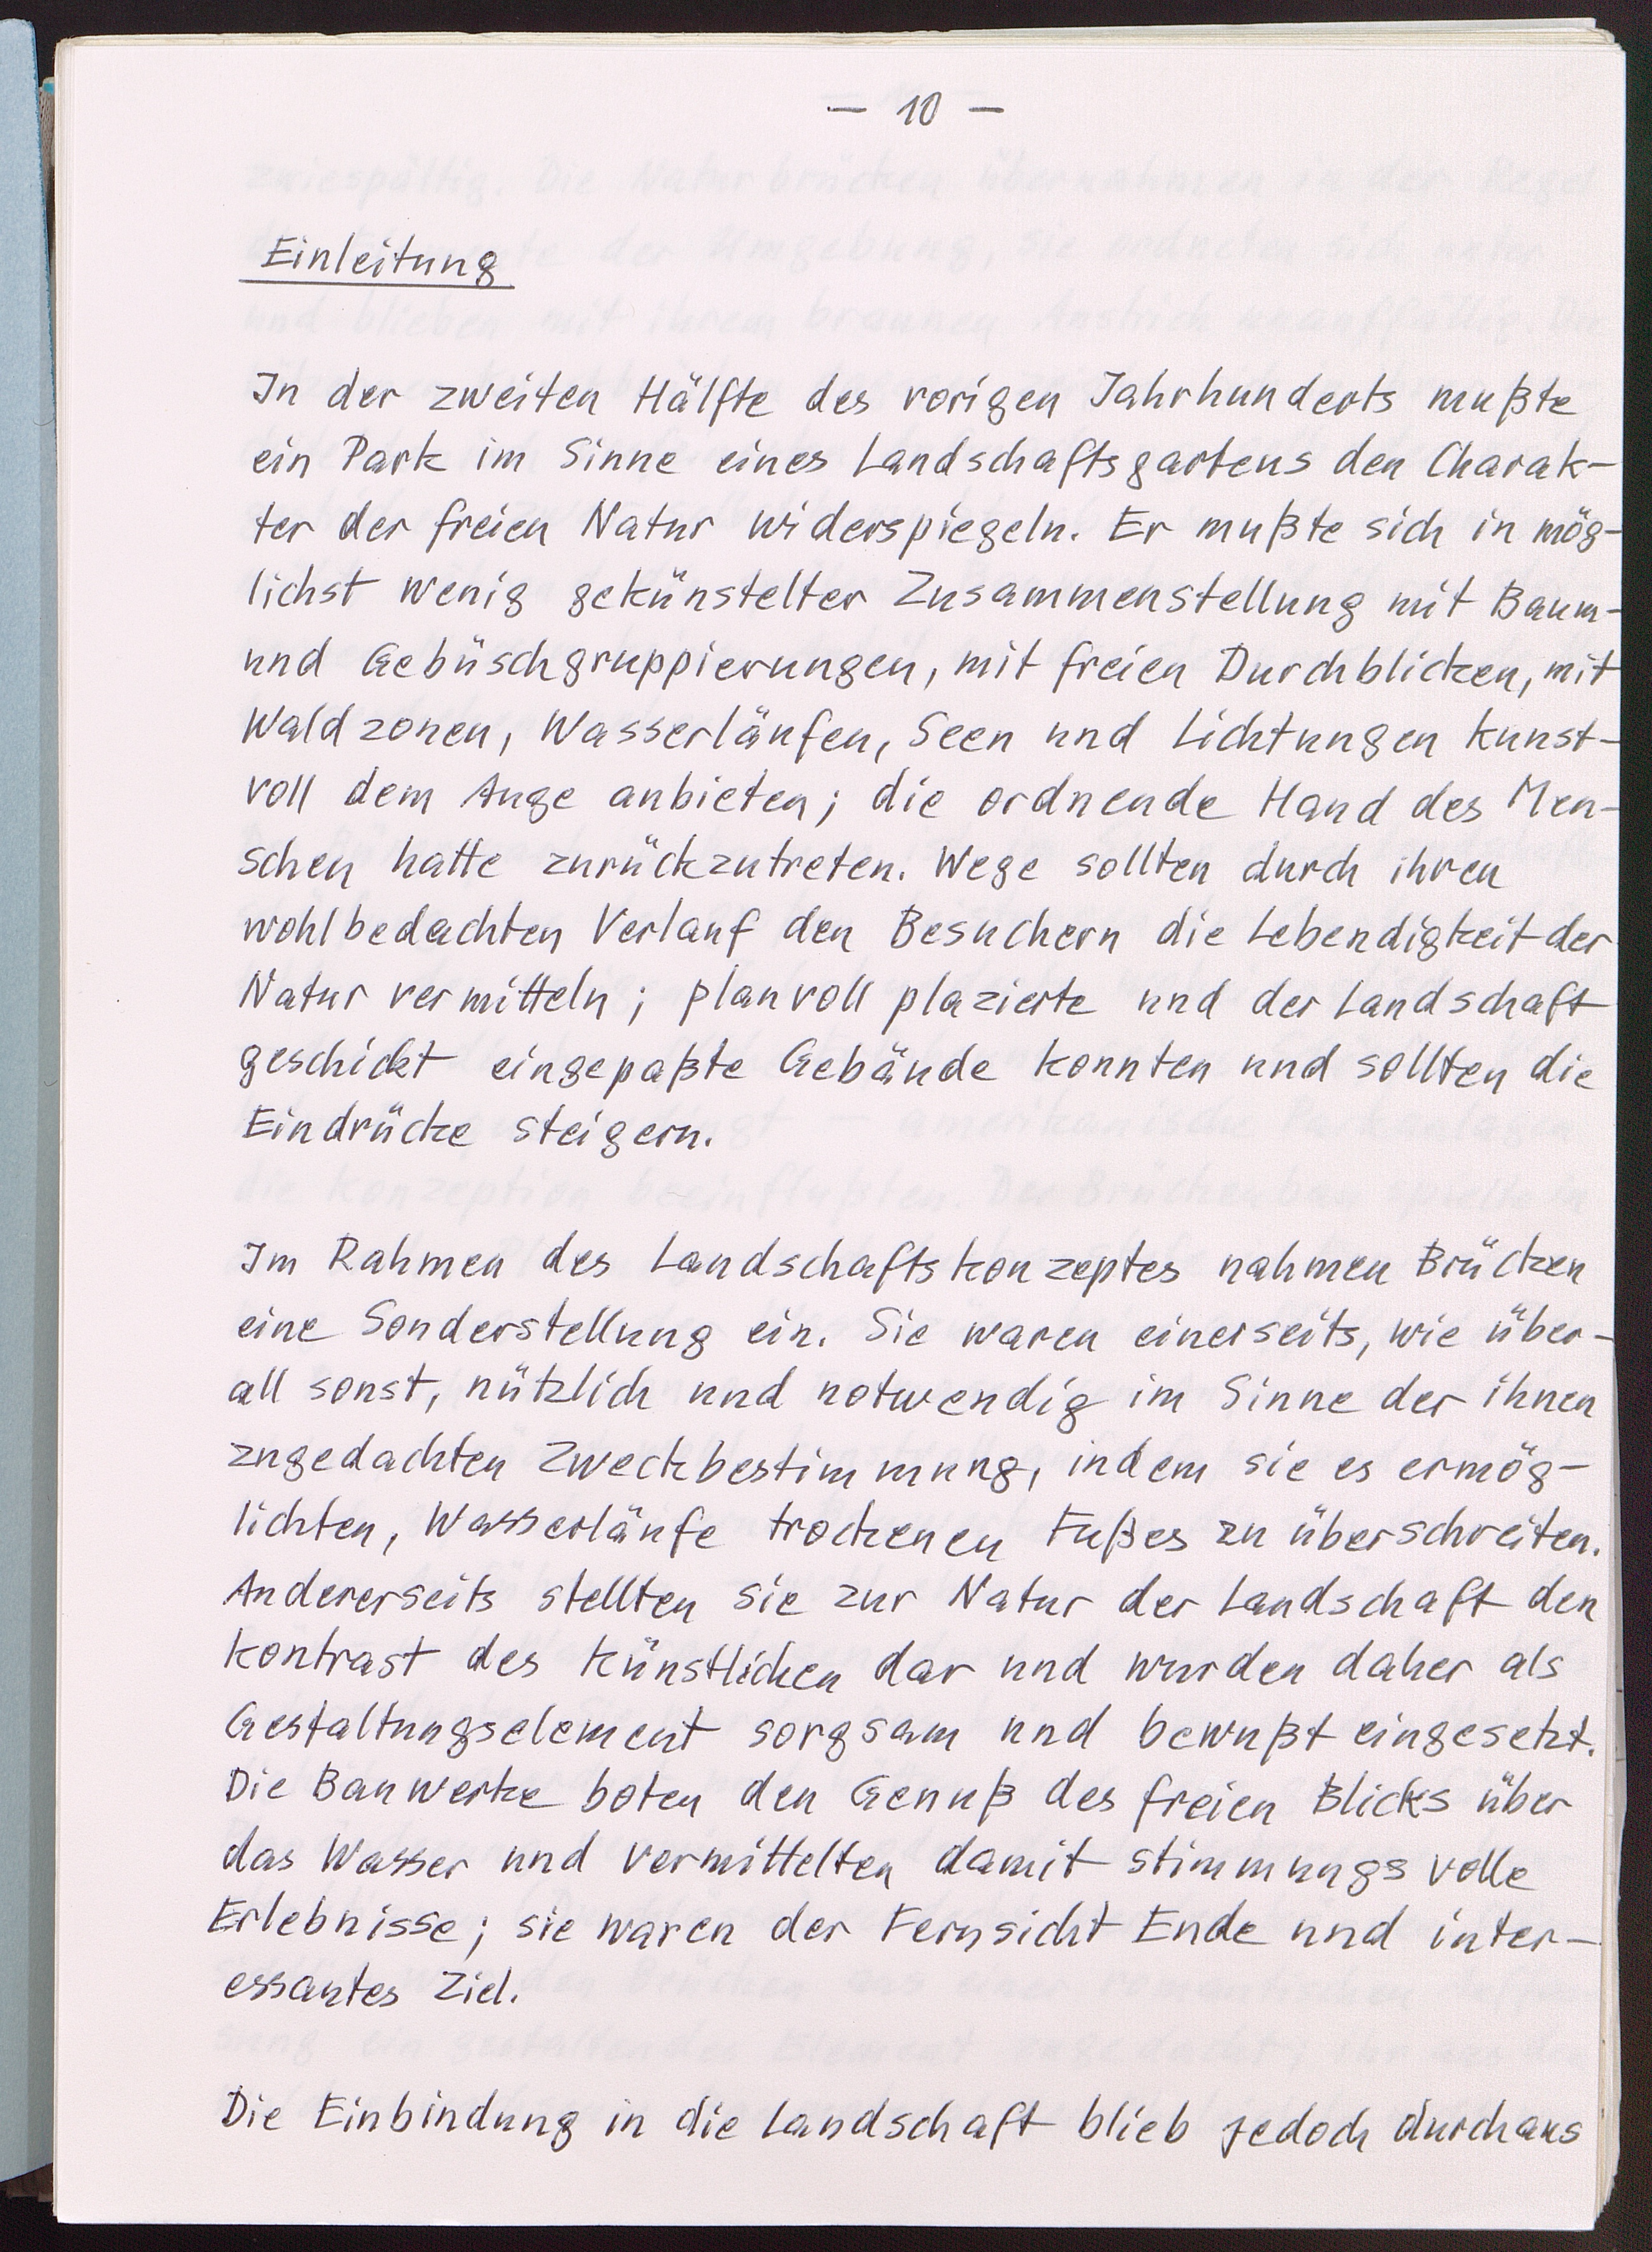 — 10 —
Einleitung
In der zweiten Hälfte des vorigen Jahrhunderts mußte
ein Park im Sinne eines Landschaftsgartens den Charak-
ter der freien Natur widerspiegeln. Er mußte sich in mög-
lichst wenig gekünstelter Zusammenstellung mit Baum-
und Gebüschgruppierungen, mit freien Durchblicken, mit
Waldzonen, Wasserläufen, Seen und Lichtungen kunst-
voll dem Auge anbieten; die ordnende Hand des Men-
schen hatte zurückzutreten. Wege sollten durch ihren
wohlbedachten Verlauf den Besuchern die Lebendigkeit der
Natur vermitteln; planvoll plazierte und der Landschaft
geschickt eingepaßte Gebäude konnten und sollten die
Eindrücke steigern.
Im Rahmen des Landschaftskonzeptes nahmen Brücken
eine Sonderstellung ein. Sie waren einerseits, wie über-
all sonst, nützlich und notwendig im Sinne der ihnen
zugedachten Zweckbestimmung, indem sie es ermög-
lichten, Wasserläufe trockenen Fußes zu überschreiten.
Andererseits stellten sie zur Natur der Landschaft den
Kontrast des Künstlichen dar und wurden daher als
Gestaltungselement sorgsam und bewußt eingesetzt.
Die Bauwerke boten den Genuß des freien Blicks über
das Wasser und vermittelten damit stimmungsvolle
Erlebnisse; sie waren der Fernsicht Ende und inter-
essantes Ziel.
Die Einbindung in die Landschaft blieb jedoch durchaus